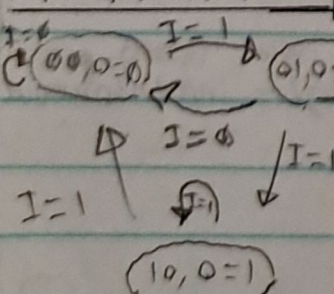 I=0 I=1
00,0=0 01,0
I=0 I=1
I=1 I=1
10,0=1